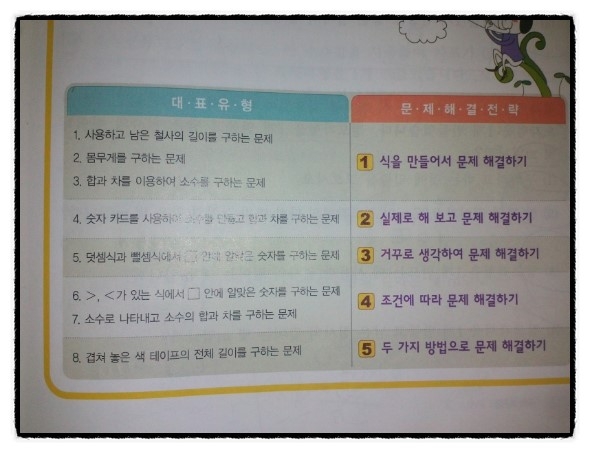 대·표·유·형
문·제·해·결·전·략
1. 사용하고 남은 철사의 길이를 구하는 문제
2. 몸무게를 구하는 문제
3. 합과 차를 이용하여 소수를 구하는 문제
1 식을 만들어서 문제 해결하기
4. 숫자 카드를 사용하여 소수를 만들고 합과 차를 구하는 문제
2 실제로 해 보고 문제 해결하기
5. 덧셈식과 뺄셈식에서 □ 안에 알맞은 숫자를 구하는 문제
3 거꾸로 생각하여 문제 해결하기
6. >, <가 있는 식에서 □ 안에 알맞은 숫자를 구하는 문제
7. 소수로 나타내고 소수의 합과 차를 구하는 문제
4 조건에 따라 문제 해결하기
8. 겹쳐 놓은 색 테이프의 전체 길이를 구하는 문제
5 두 가지 방법으로 문제 해결하기